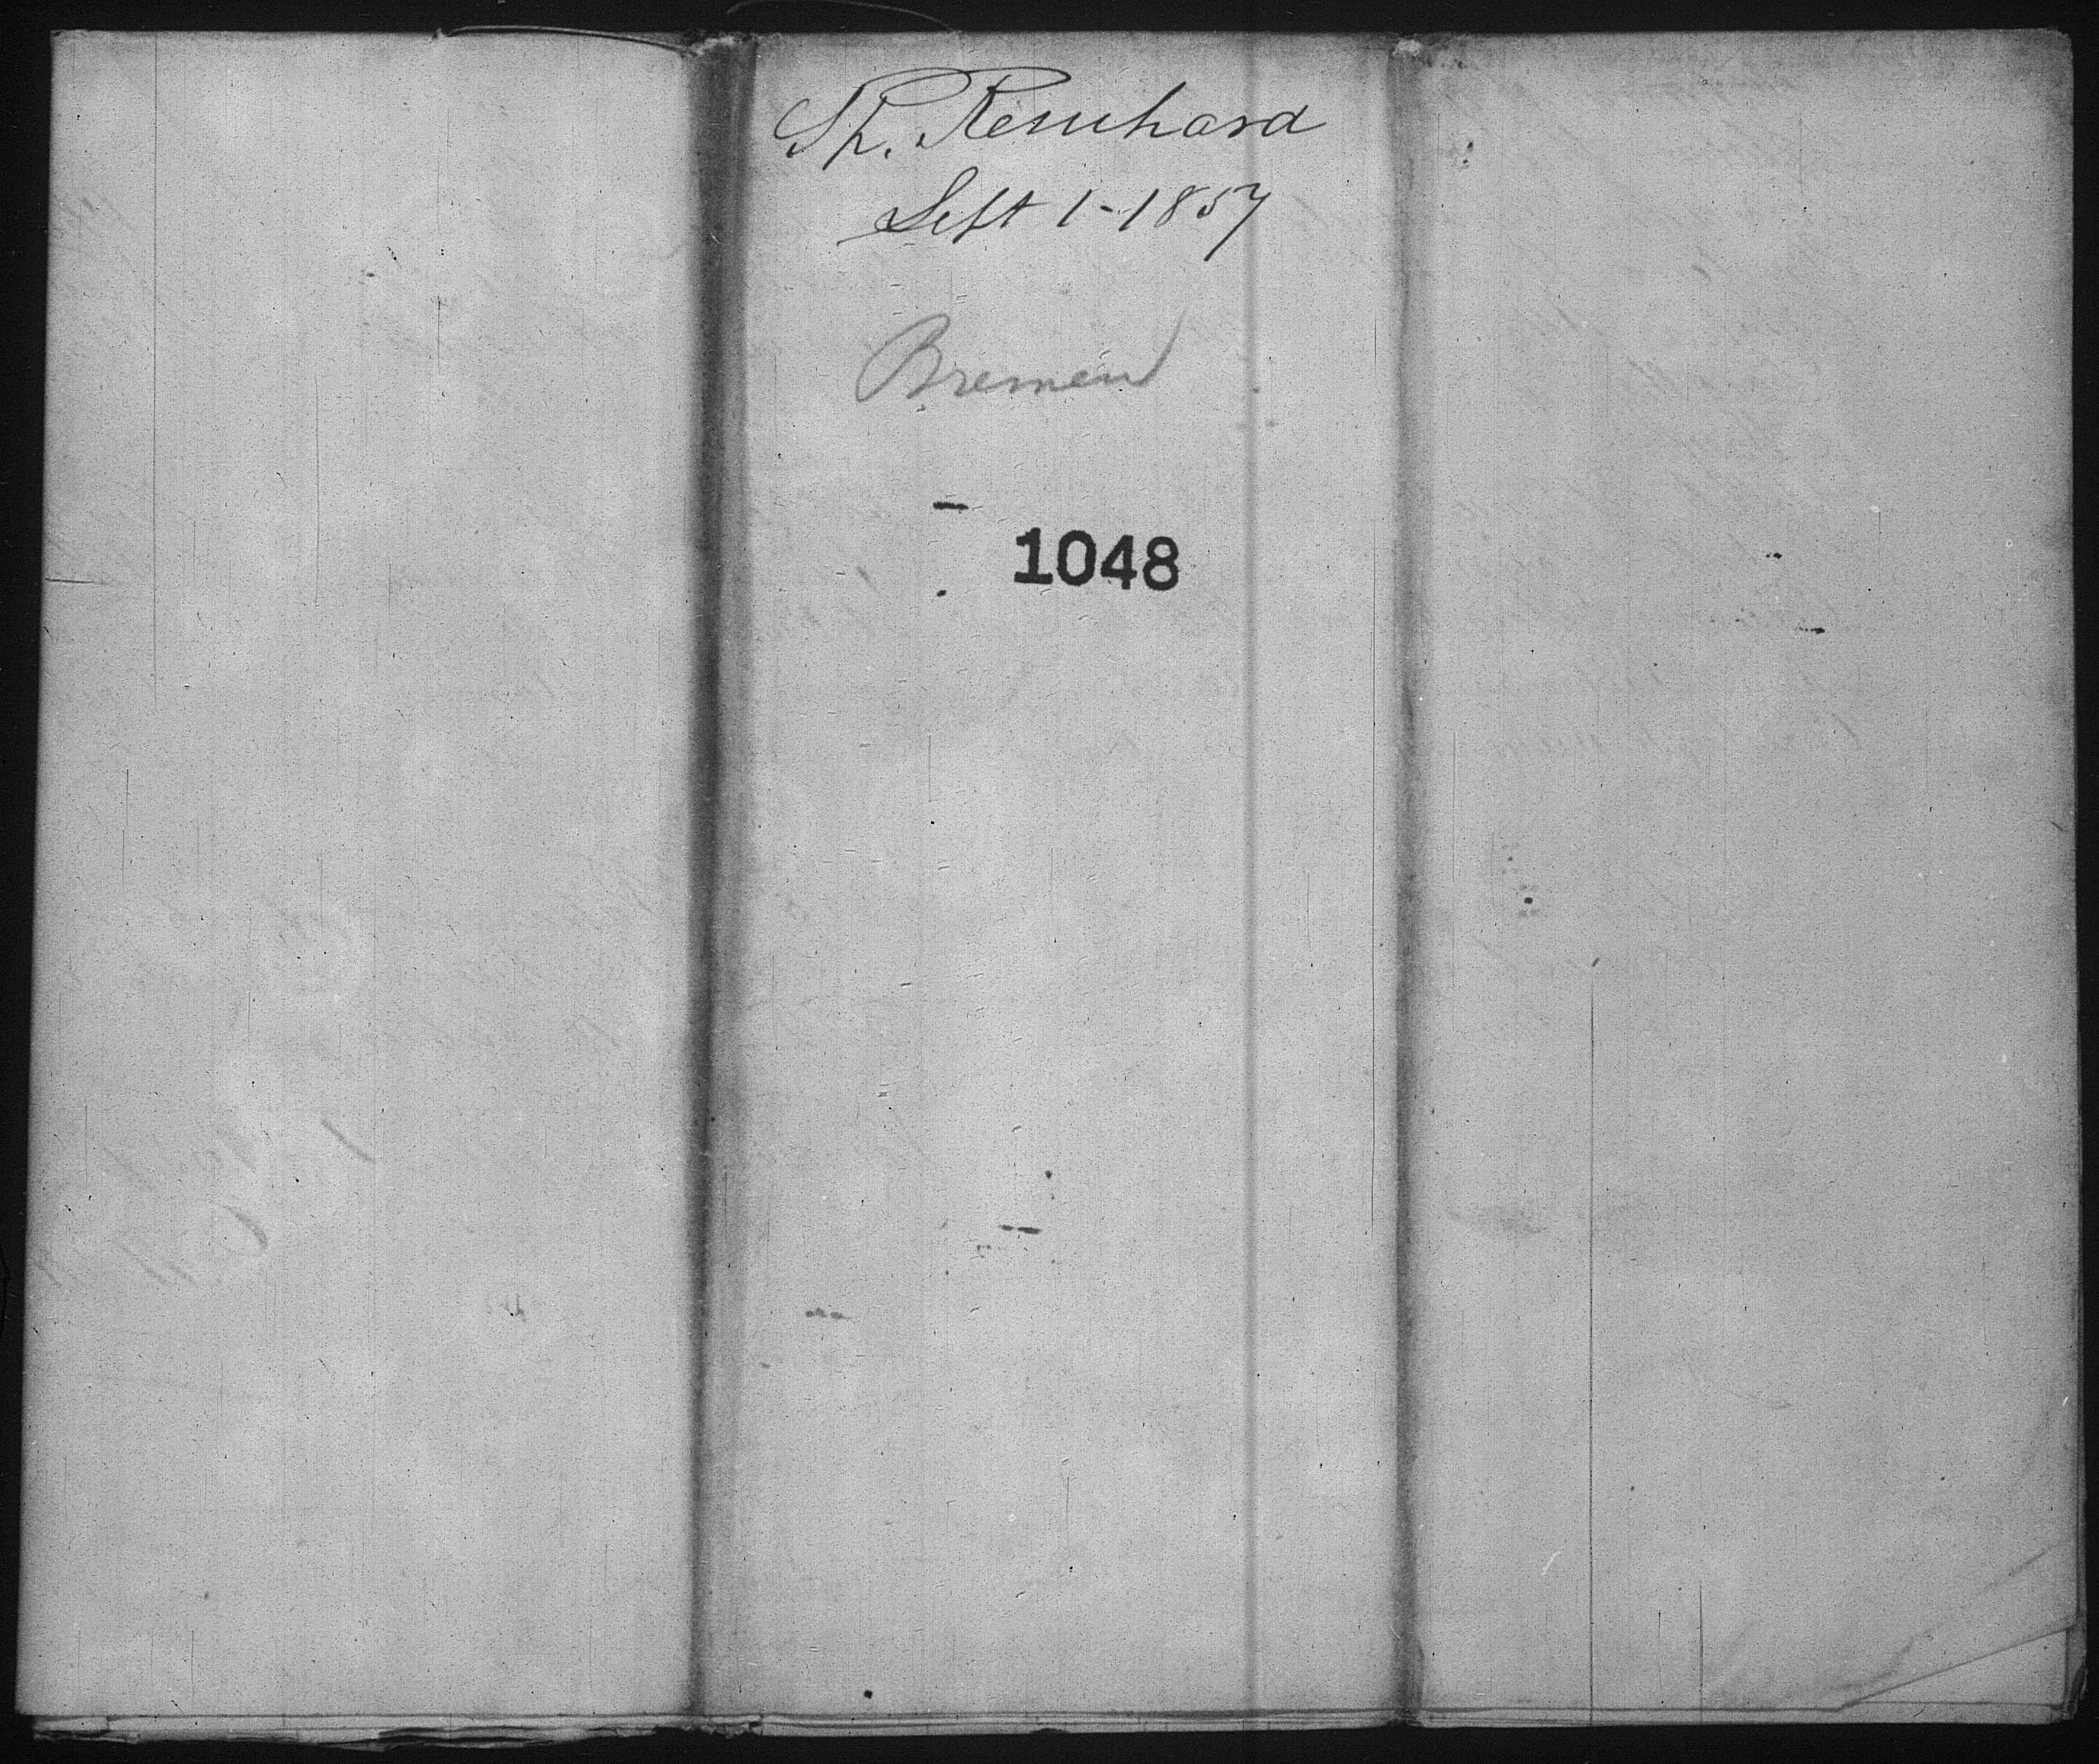 Sh. Reinhard
Sept 1-1857
Bremen
1048